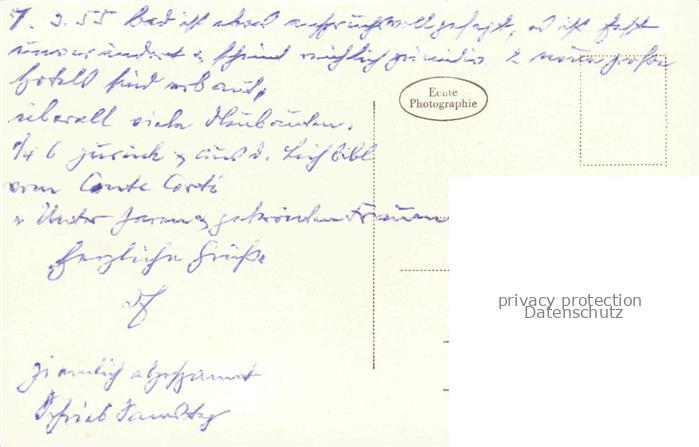 7. 3. 55 Bad ist etwas anspruchsvoll gesagt, es ist fast
unverändert & scheint reichlich primitiv. 2 neue große
Hotels sind erbaut,
überall viele Neubauten.
zurück, aus d. Leihbibl
vom Conte Corti
" Unter Zaren & gekrönten Frauen
Herzliche Grüße
ziemlich abgespannt
Schrieb Samstag
Echte
Photographie
privacy protection
Datenschutz